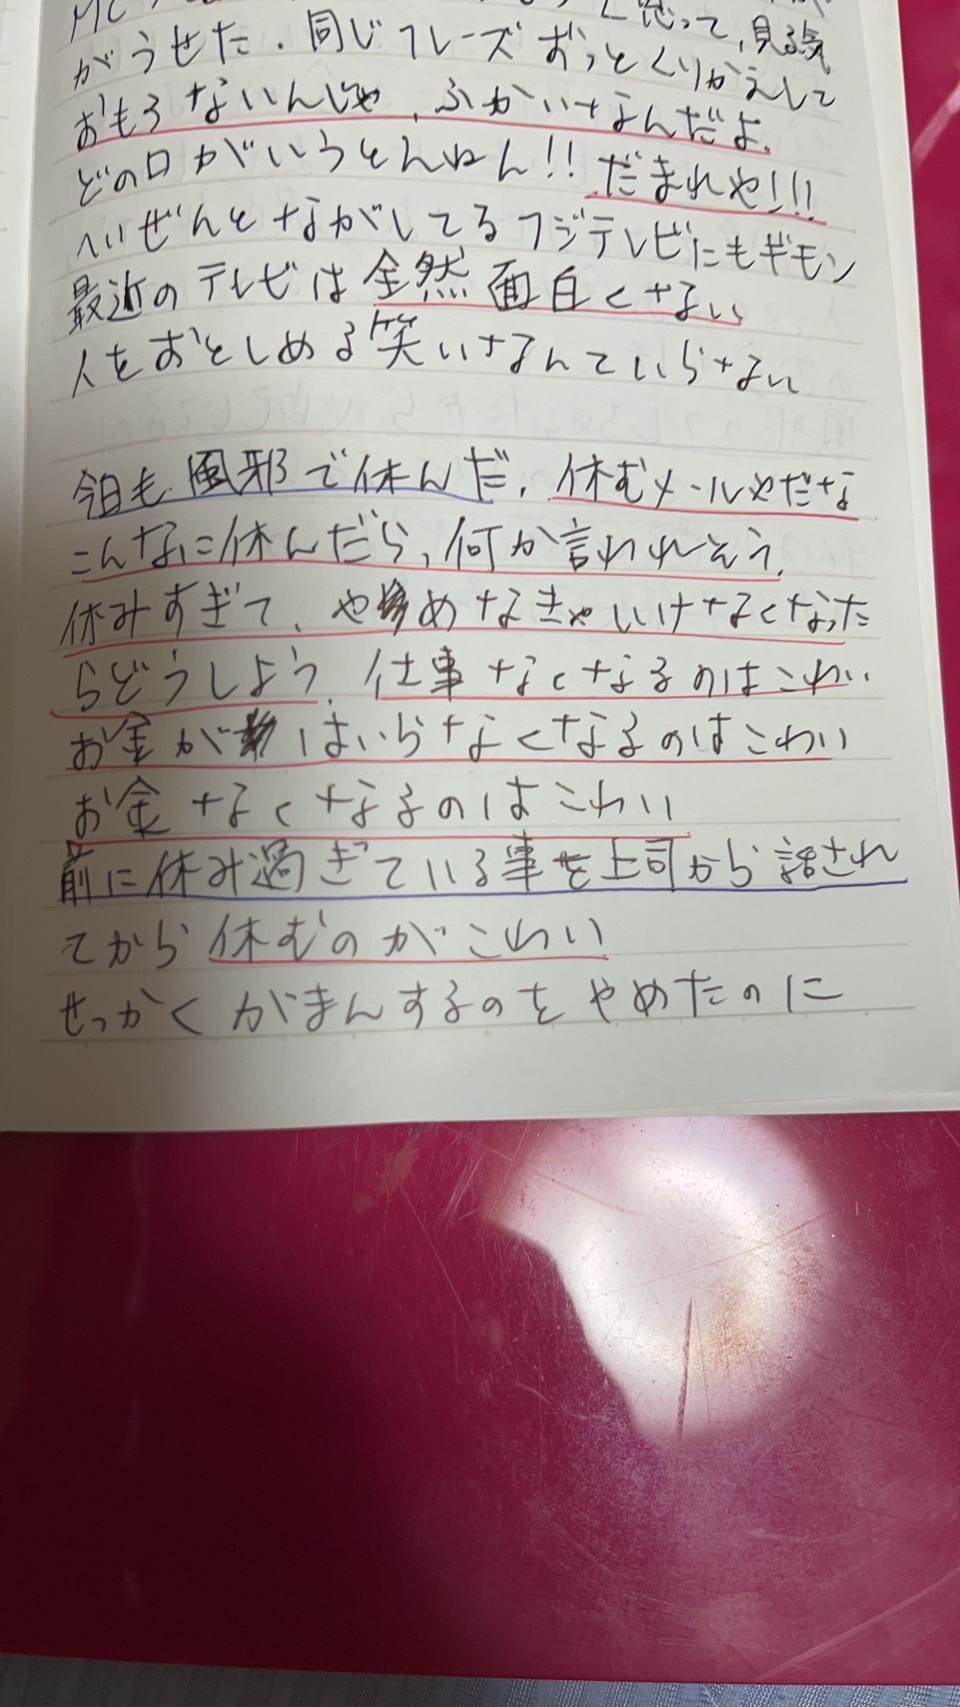 思って、見る気
がうせた。同じフレーズずっとくりかえして
おもろないんじゃ、ふかいなんだよ。
どの口がいうとんねん!! だまれや!!!
へいぜんとながしてるフジテレビにもギモン
最近のテレビは全然面白くない
人をおとしめる笑いなんていらない
今日も風邪で休んだ。休むメールやだな
こんなに休んだら、何か言われそう。
休みすぎて、やめなきゃいけなくなった
らどうしよう。仕事なくなるのはこわい
お金がはいらなくなるのはこわい
お金なくなるのはこわい
前に休み過ぎている事を上司から話され
てから休むのがこわい
せっかくがまんするのをやめたのに